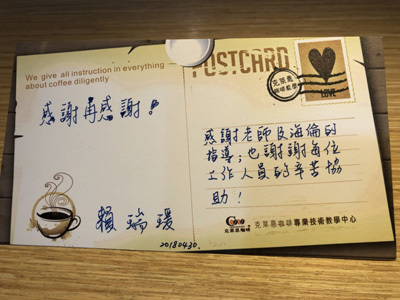 POSTCARD
We give all instruction in everything
about coffee diligently
感謝再感謝!
賴瑞瑗
20180430.
LOVE
感謝老師及海倫的
指導;也謝謝每位
工作人員的辛苦協
助!
克萊恩咖啡專業技術教學中心